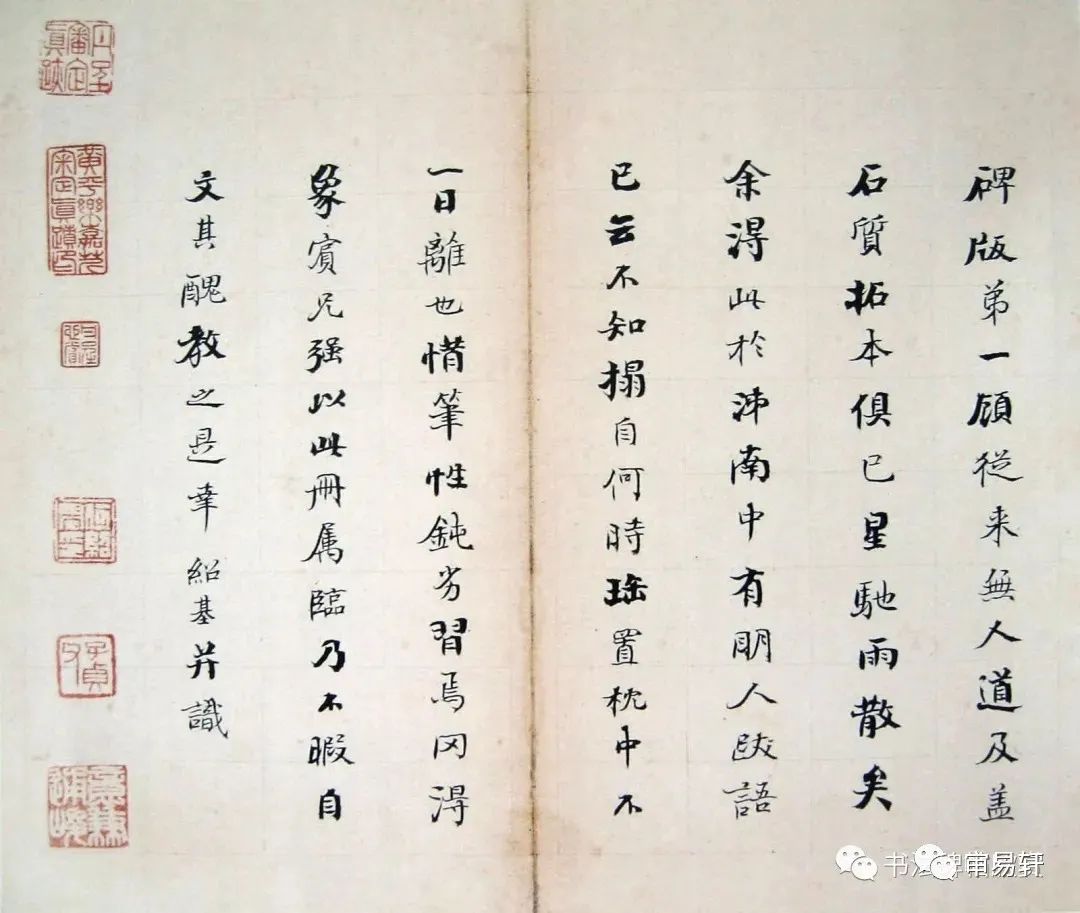 碑版弟一顧從来無人道及盖
石質拓本俱已星馳雨散矣
余得此於沛南中有明人跋語
已云不知搨自何時珎置枕中不
一日離也惜筆性鈍劣習焉罔得
象賓兄强以此冊属臨乃不暇自
文其醜教之是幸紹基并識
子貞